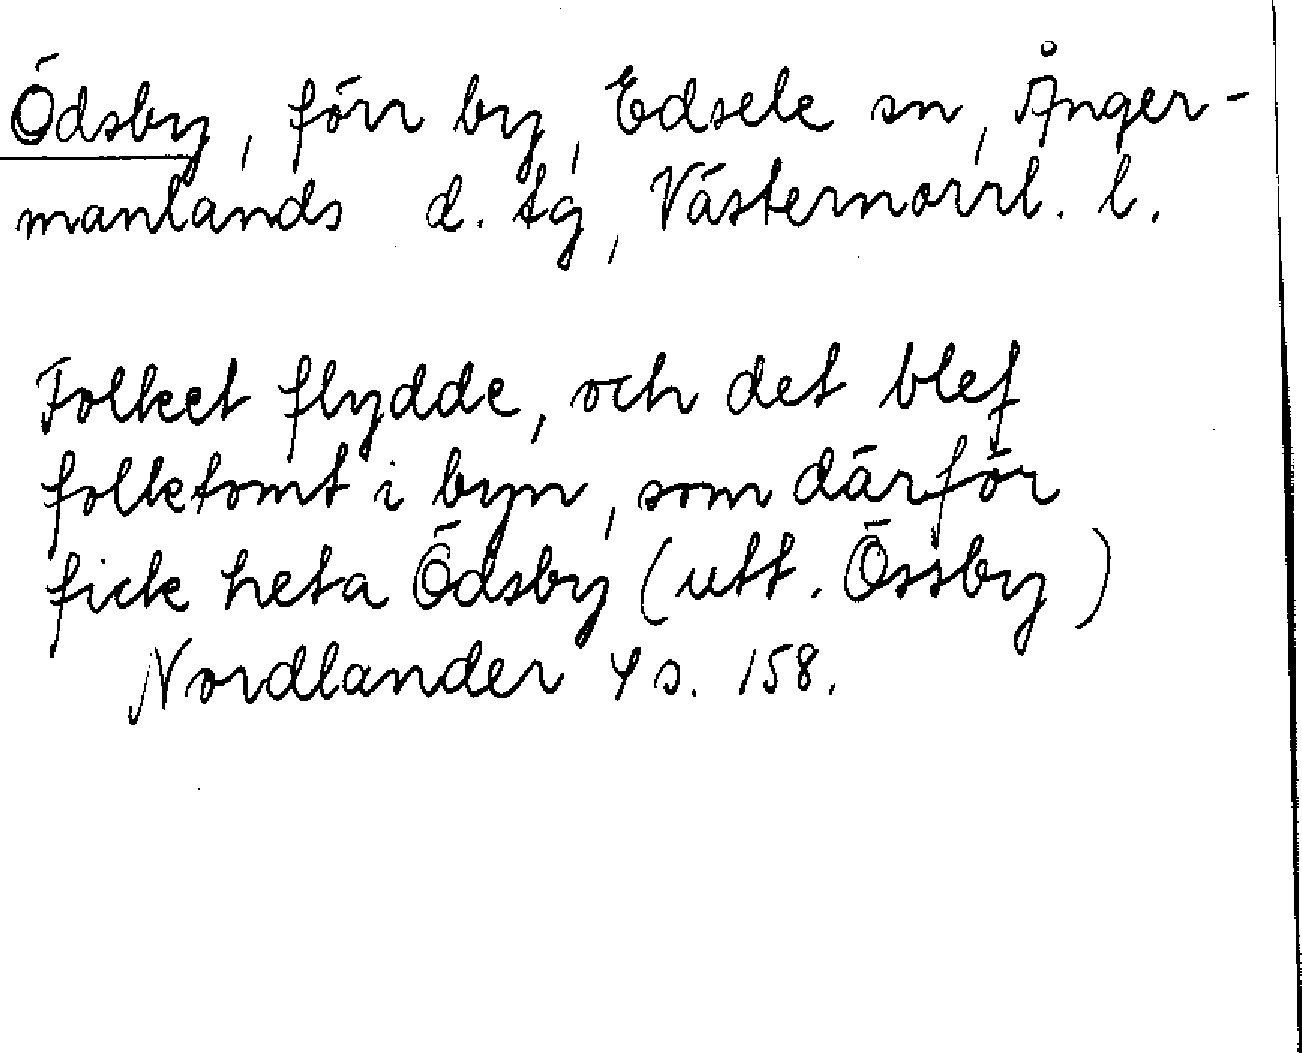 Ödsby, förr by, Edsele sn, Ånger-
manlands d. tg, Västernorrl. l.
Folket flydde, och det blef
folktomt i byn, som därför
fick heta Ödsby (utt. Össby)
Nordlander 4 s. 158.